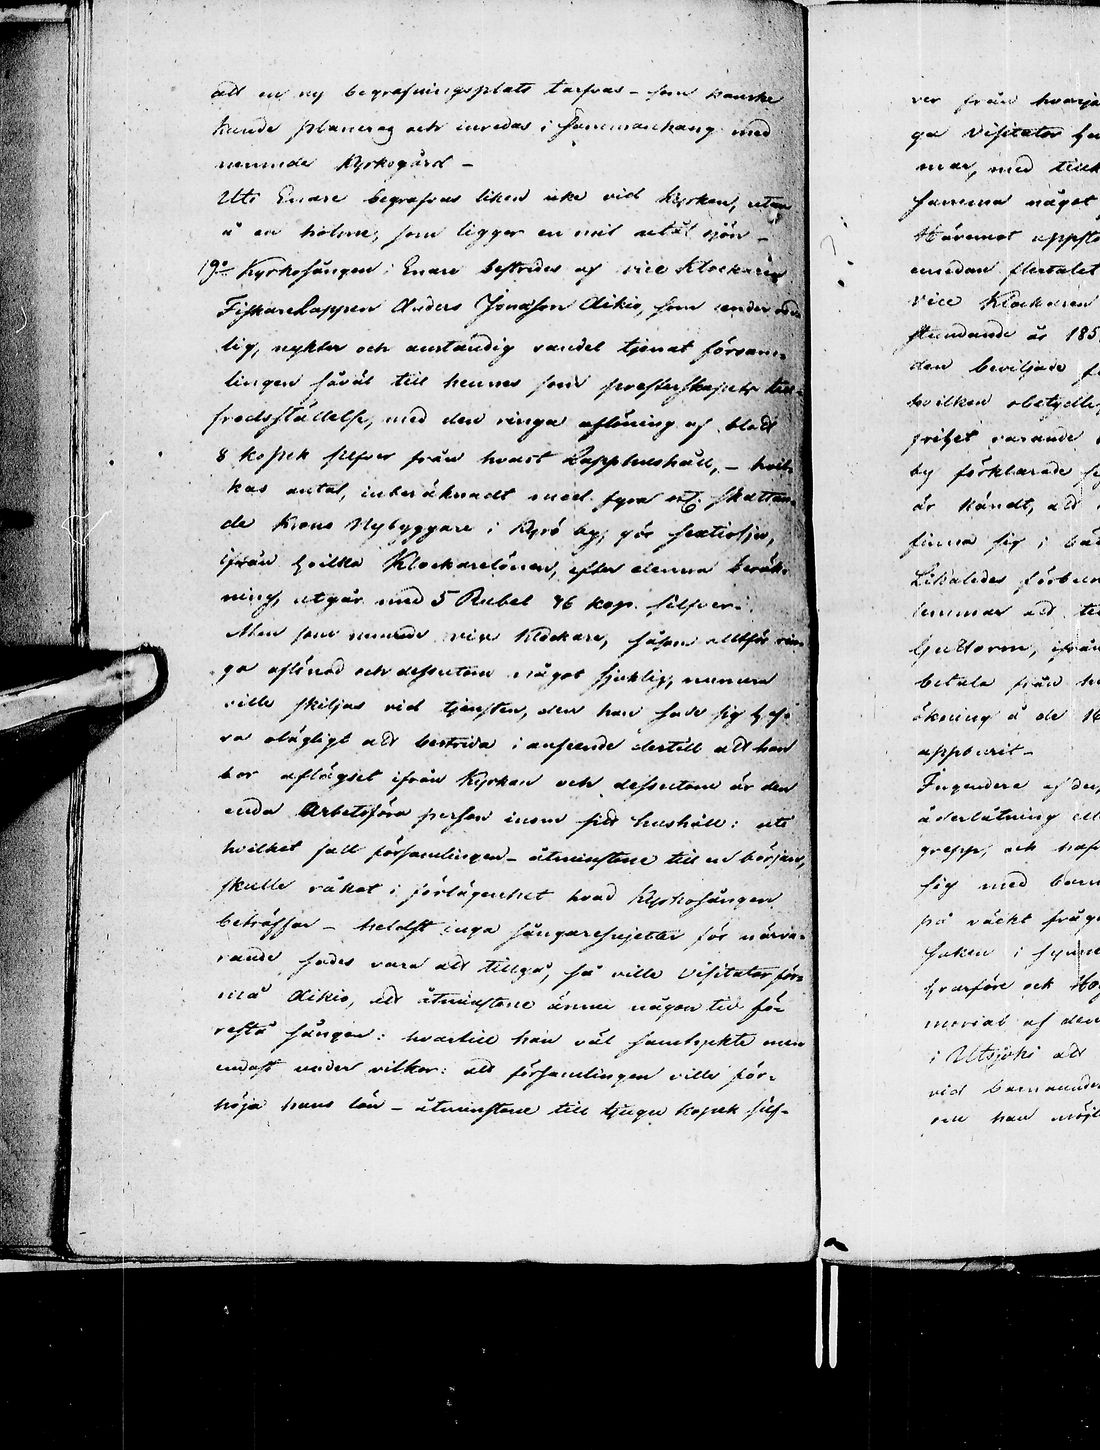 att en ny begrafningsplats tarfvas – som kanske
kunde planeras och inredas i sammanhang med
nämnde Kyrkogård –
Uti Enare begrafvas liken icke vid Kyrkan, utan
å en holme, som ligger en mil utåt sjön –
19o Kyrkosången i Enare bestrides af vice Klockaren
FiskareLappen Anders Jonasson Aikio, som under
lig, nykter och anständig vandel tjenat försam-
lingen såväl till hennes som presterskapets till-
fredsställelse, med den ringa aflöning af blott
8 kopek silfver från hvart Lapphushåll, – hvil-
kas antal, inberäknadt med fyra st. skattan-
de Krono Nybyggare i Kyrö by, gör sextiosju,
ifrån hvilka Klockarelönen, efter denna beräk-
ning, utgår med 5 Rubel 76 kop. silfver.
Men som nämnde vice Klockare, såsom alltför rin-
ga aflönad och dessutom något sjuklig, numera
ville skiljas vid tjensten, den han sade sig haf-
va olägligt att bestrida i anseende dertill att han
bor aflägset ifrån Kyrkan och dessutom är den
enda Arbetsföra person inom sitt hushåll: uti
hvilket fall församlingen – åtminstone till en början,
skulle råkat i förlägenhet hvad Kyrkosången
beträffar – heldst inga sångaresujetter för närva-
rande sades vara att tillgå, så ville Visitator för-
må Aikio, att åtminstone ännu någon tid fö-
restå sången: hvartill han väl samtyckte men
endast under vilkor: att församlingen ville för-
höja hans lön – åtminstone till tjugu kopek silf-
ver från hvarje
ga Visitator
mar, med
samma något
Häremot
emedan flertalet
vice Klockaren
stundande år 185
den beviljade
hvilken obetydlig
priset varande
by förklarade
är kändt, att
finna sig i
Likaledes
lemmar att
Guttorm, ifrån
betala från
ökning å de 16
uppburit –
Ingendera af
åderlåtning
grepp, och
sig med barn
på väckt fråga
saken i
hvarföre och
morial af den
i Utsjoki att
vid
om han